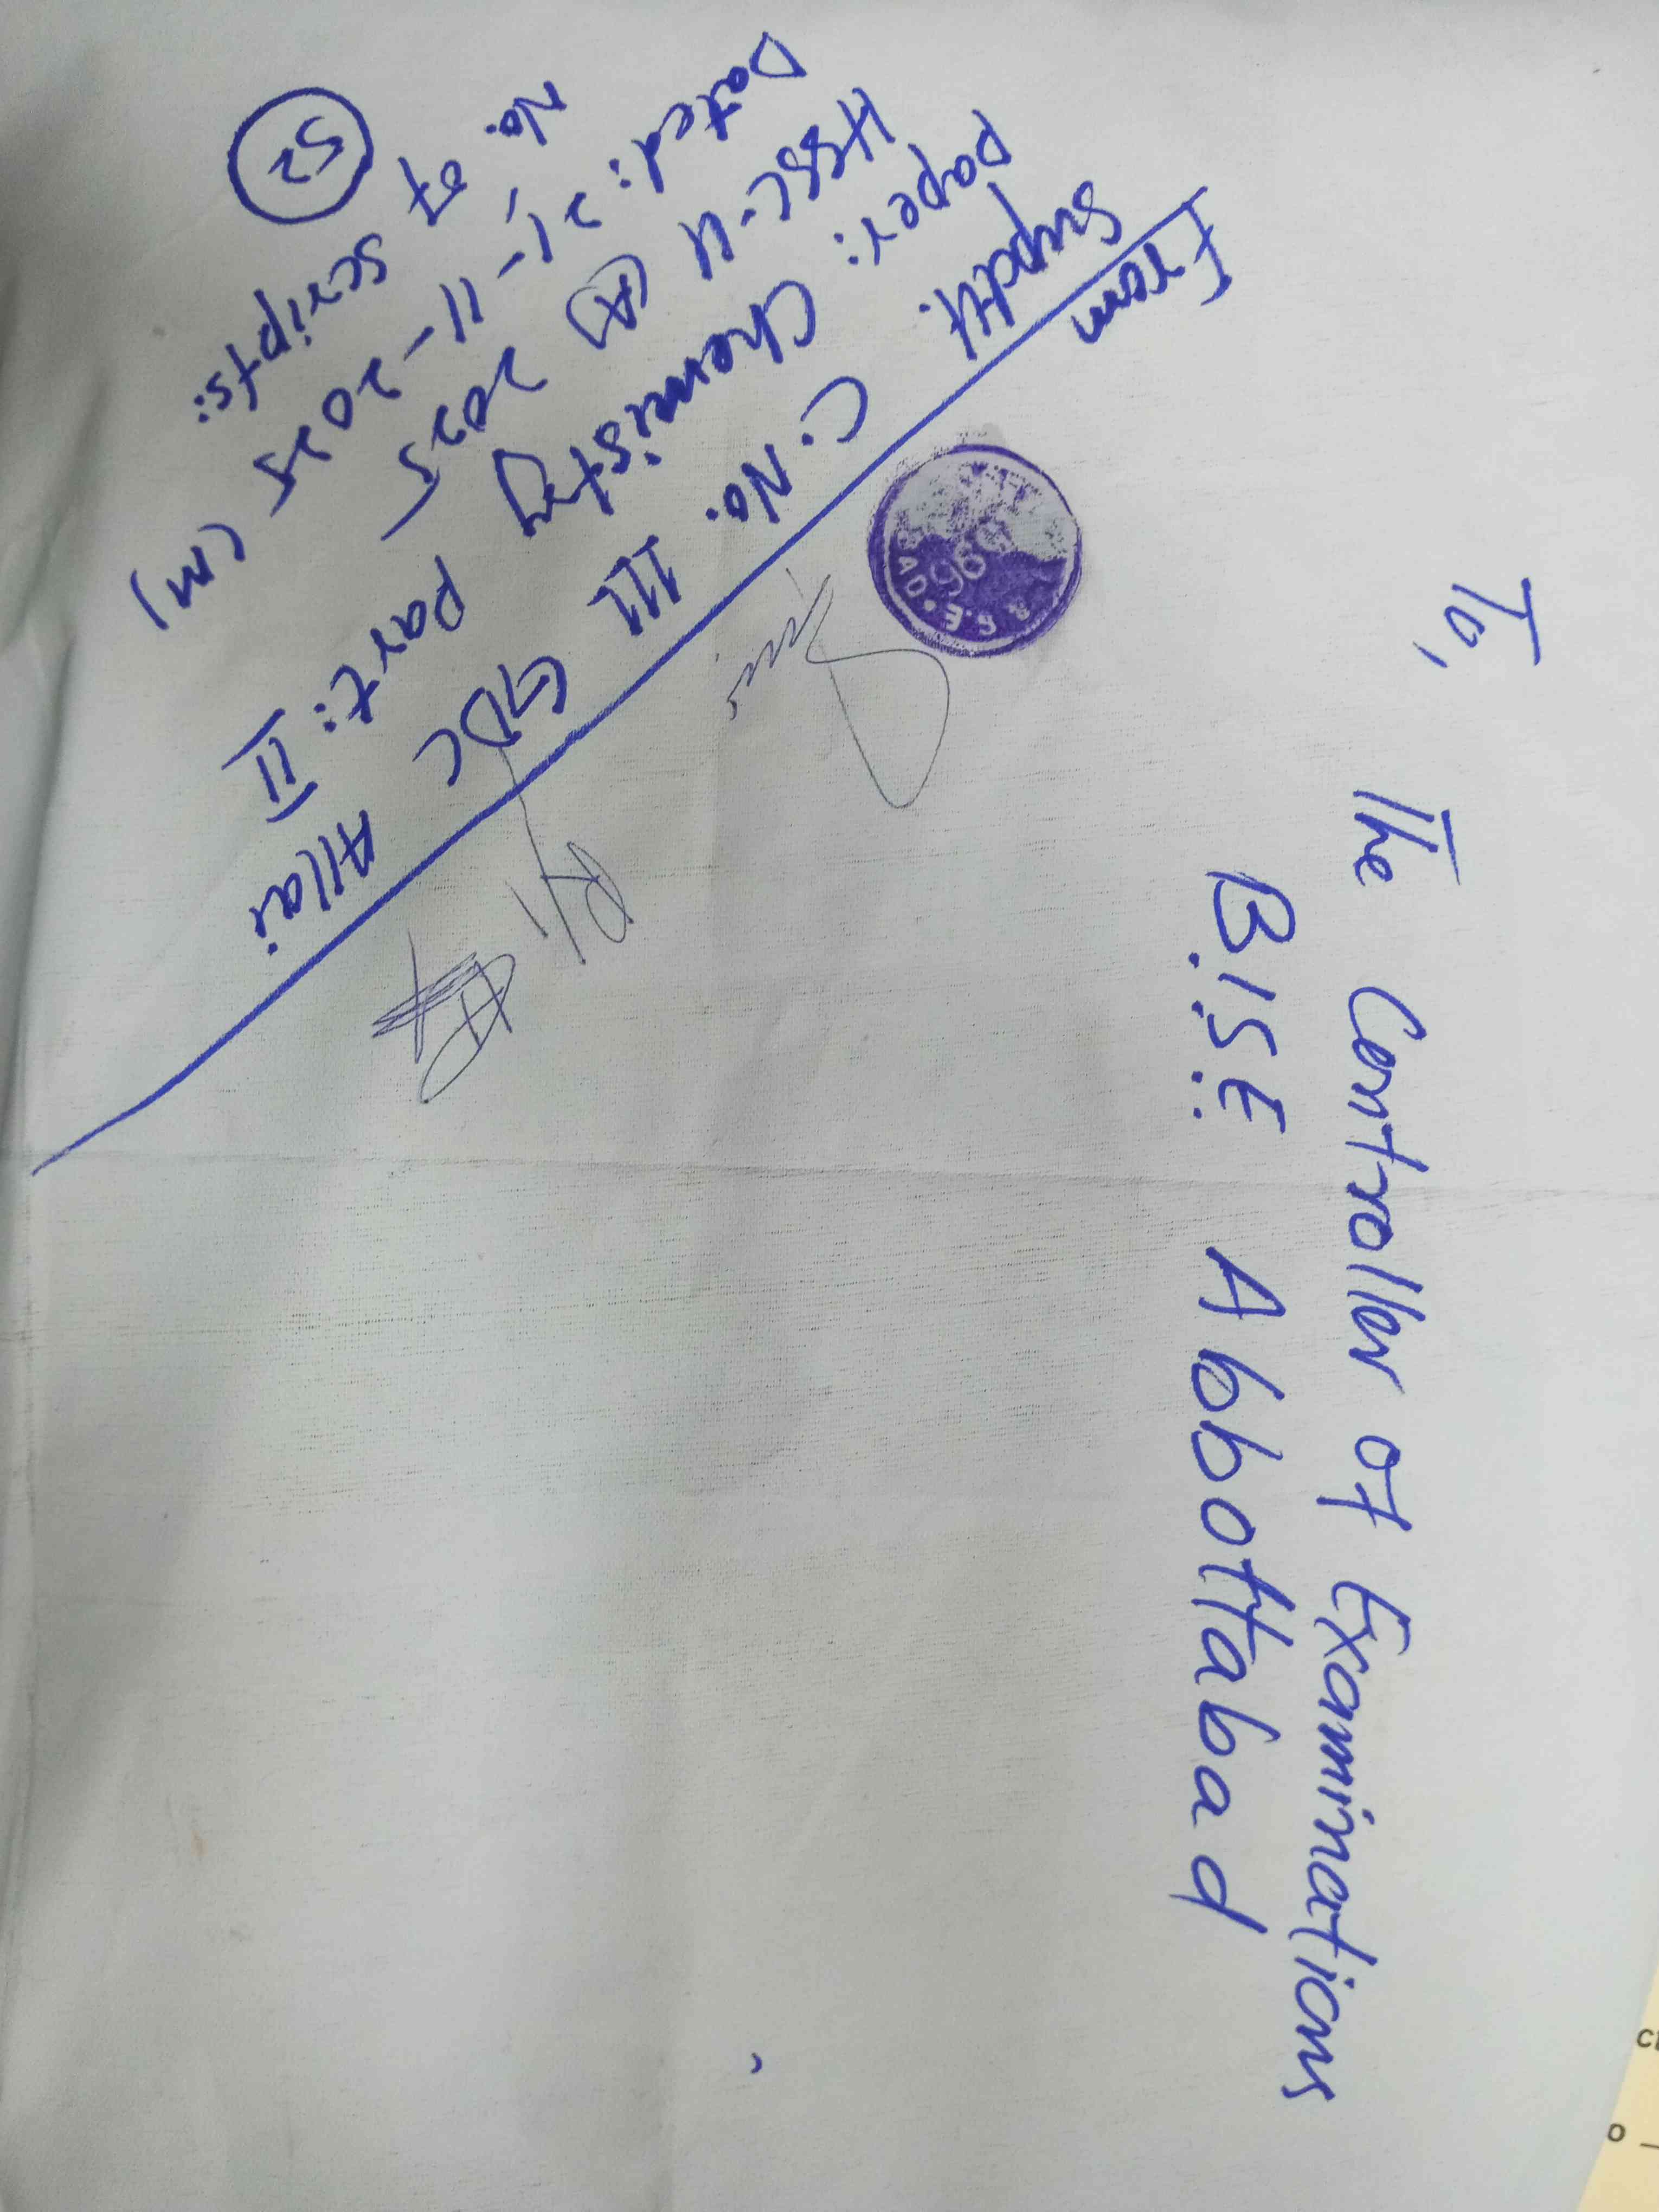 To,
The Controller of Examinations
B.I.S.E. Abbottabad
From
Supdtt. C.No. III GDC Allai
Paper: Chemistry Part: II
HSSC-II (A) 2025
Dated: 21-11-2025 (M)
No. of Scripts: 52